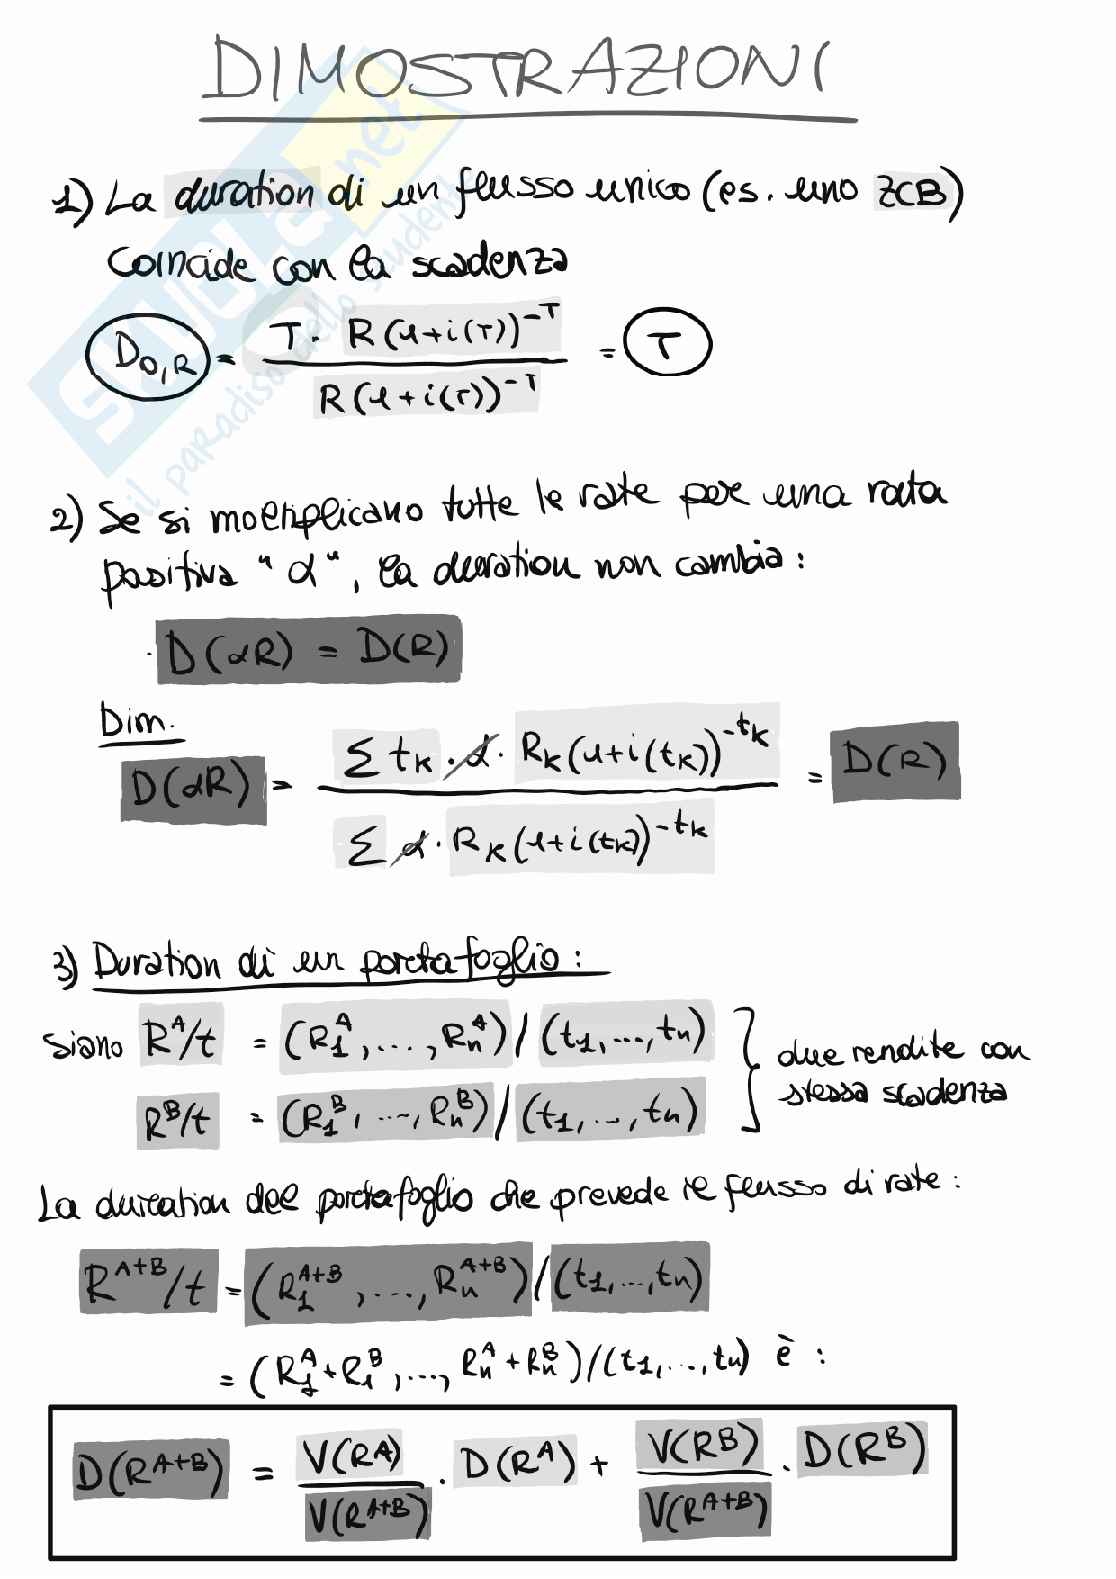 DIMOSTRAZIONI
1) La duration di un flusso unico (es. uno ZCB)
coincide con la scadenza
D₀,R = T · R(1+i(T))^-T / R(1+i(T))^-T = T
2) Se si moltiplicano tutte le rate per una rata
positiva "α", la duration non cambia:
D(αR) = D(R)
Dim.
D(αR) = Σ tₖ · α · Rₖ(1+i(tₖ))^-tₖ / Σ α · Rₖ(1+i(tₖ))^-tₖ = D(R)
3) Duration di un portafoglio:
Siano R^A/t = (R₁^A, ..., Rₙ^A) / (t₁, ..., tₙ)
R^B/t = (R₁^B, ..., Rₙ^B) / (t₁, ..., tₙ)
due rendite con
stessa scadenza
La duration del portafoglio che prevede il flusso di rate:
R^A+B/t = (R₁^A+B, ..., Rₙ^A+B) / (t₁, ..., tₙ)
= (R₁^A + R₁^B, ..., Rₙ^A + Rₙ^B) / (t₁, ..., tₙ) è :
D(R^A+B) = V(R^A) / V(R^A+B) · D(R^A) + V(R^B) / V(R^A+B) · D(R^B)
skuola.net
il paradiso dello studente